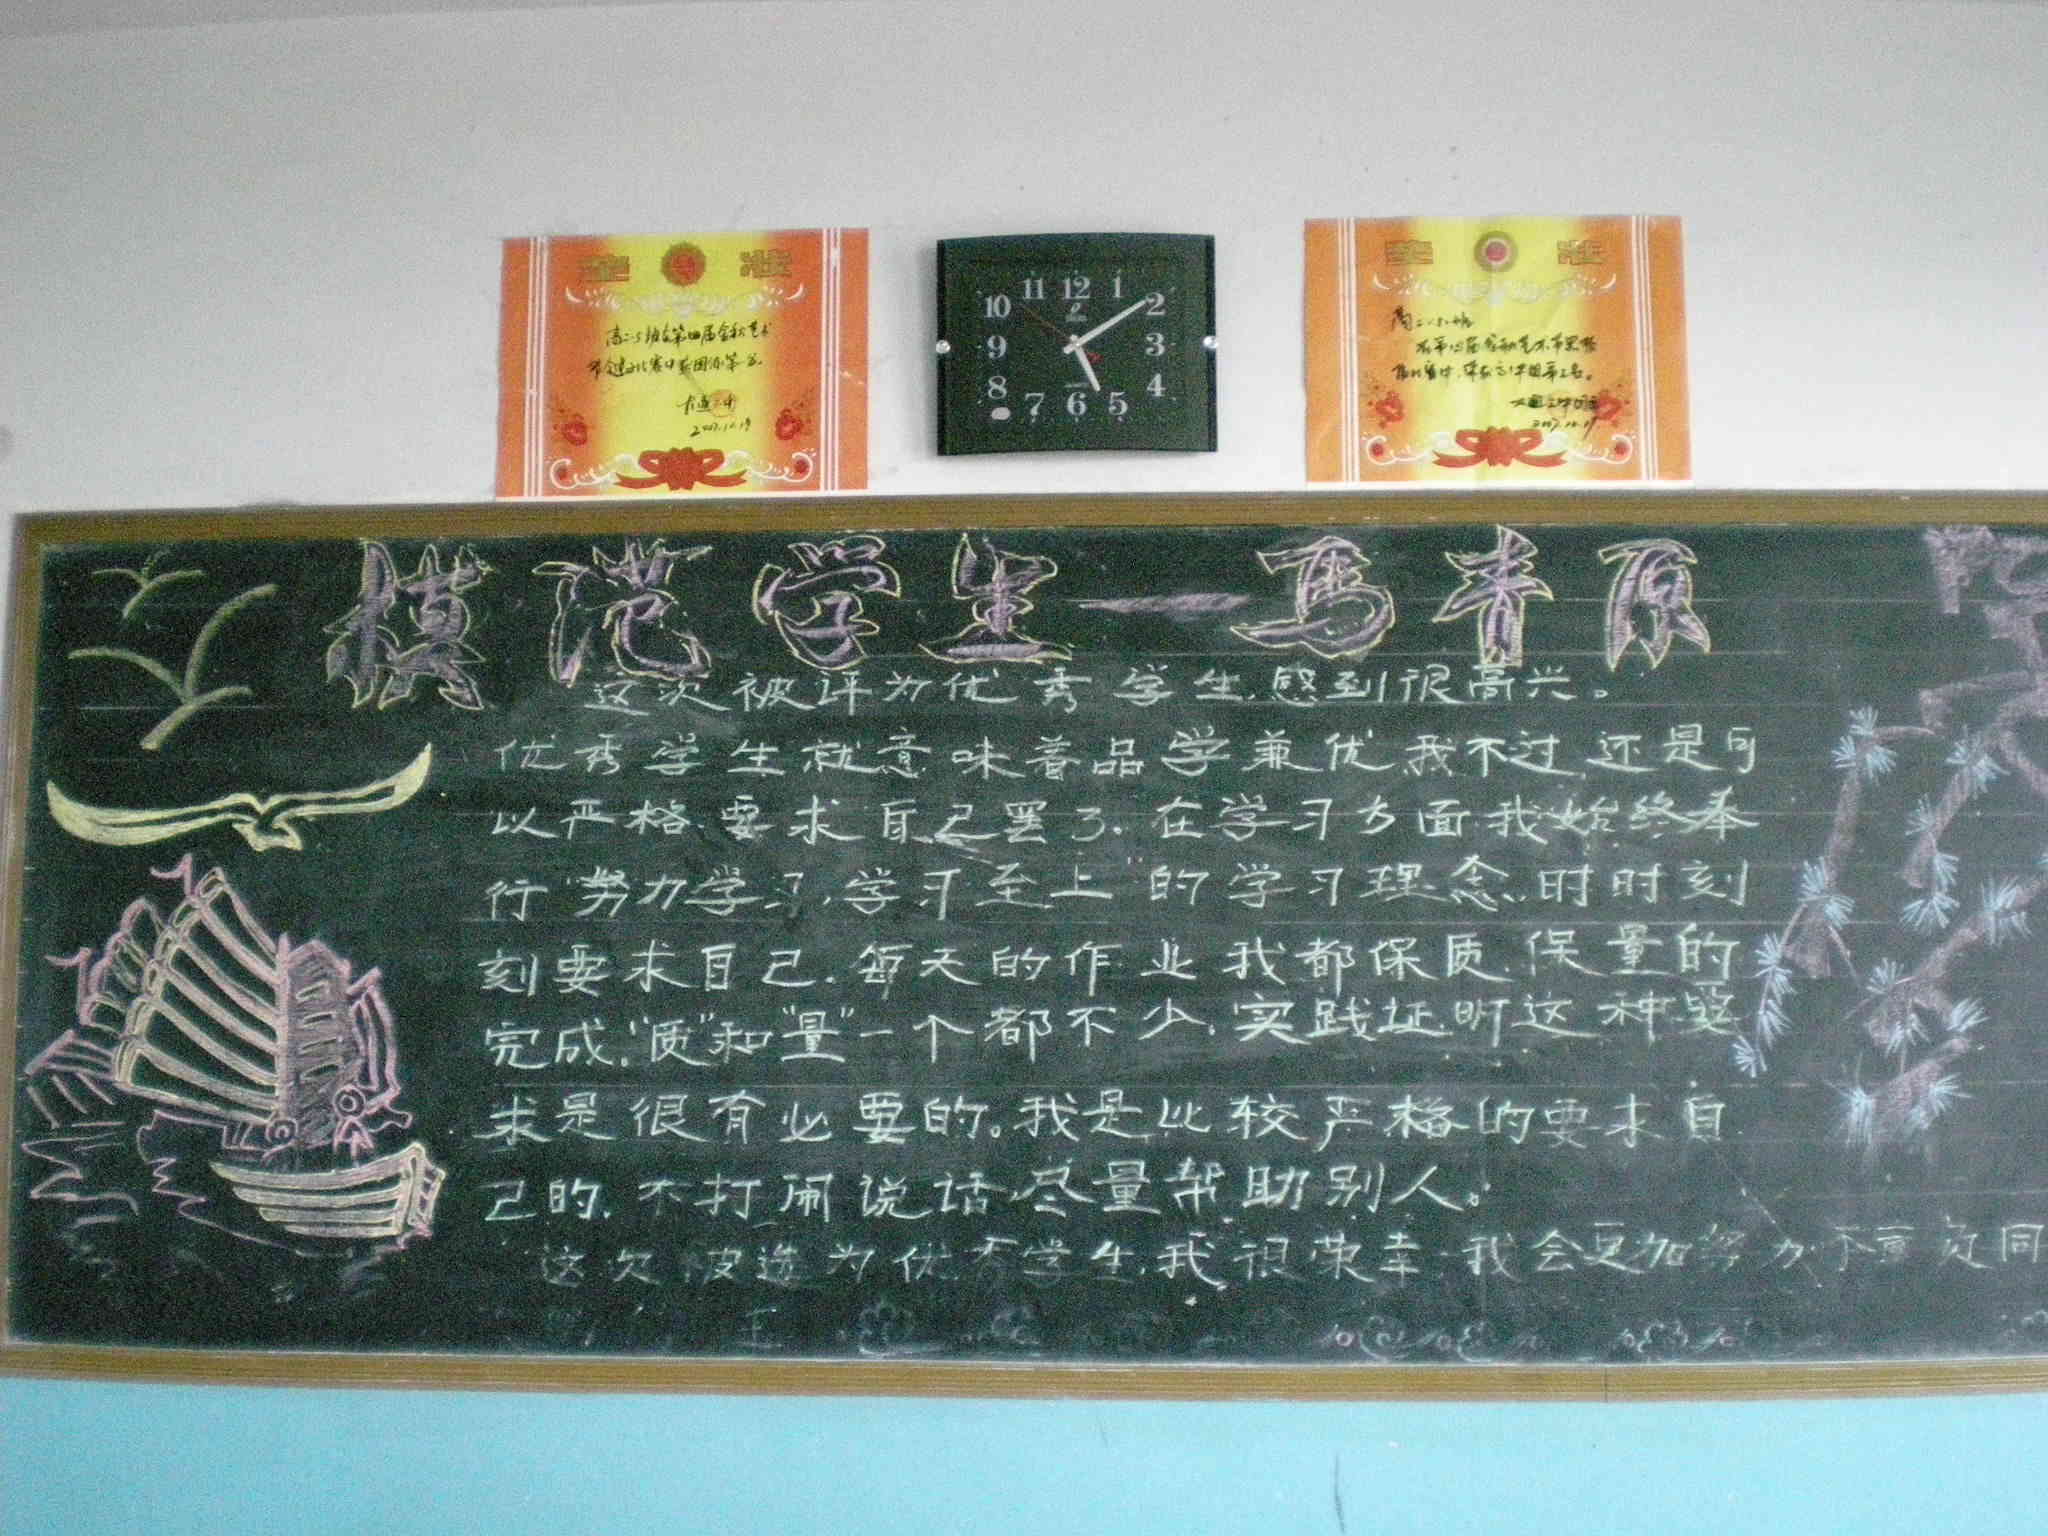 奖 状
高二.5班在第四届金秋艺术
2007.10.19
11 12 1
10 2
9 3
8 4
7 6 5
奖 状
高二.5班
2007.10.19
模范学生—马青原
这次被评为优秀学生,感到很高兴。
优秀学生就意味着品学兼优,我不过,还是可
以严格要求自己罢了.在学习方面我始终奉
行"努力学习,学习至上"的学习理念,时时刻
刻要求自己.每天的作业我都保质.保量的
完成."质"和"量"一个都不少.实践证明这种要
求是很有必要的。我是比较严格的要求自
己的,不打闹说话,尽量帮助别人。
这次被选为优秀学生,我很荣幸.我会更加努力不辜负同